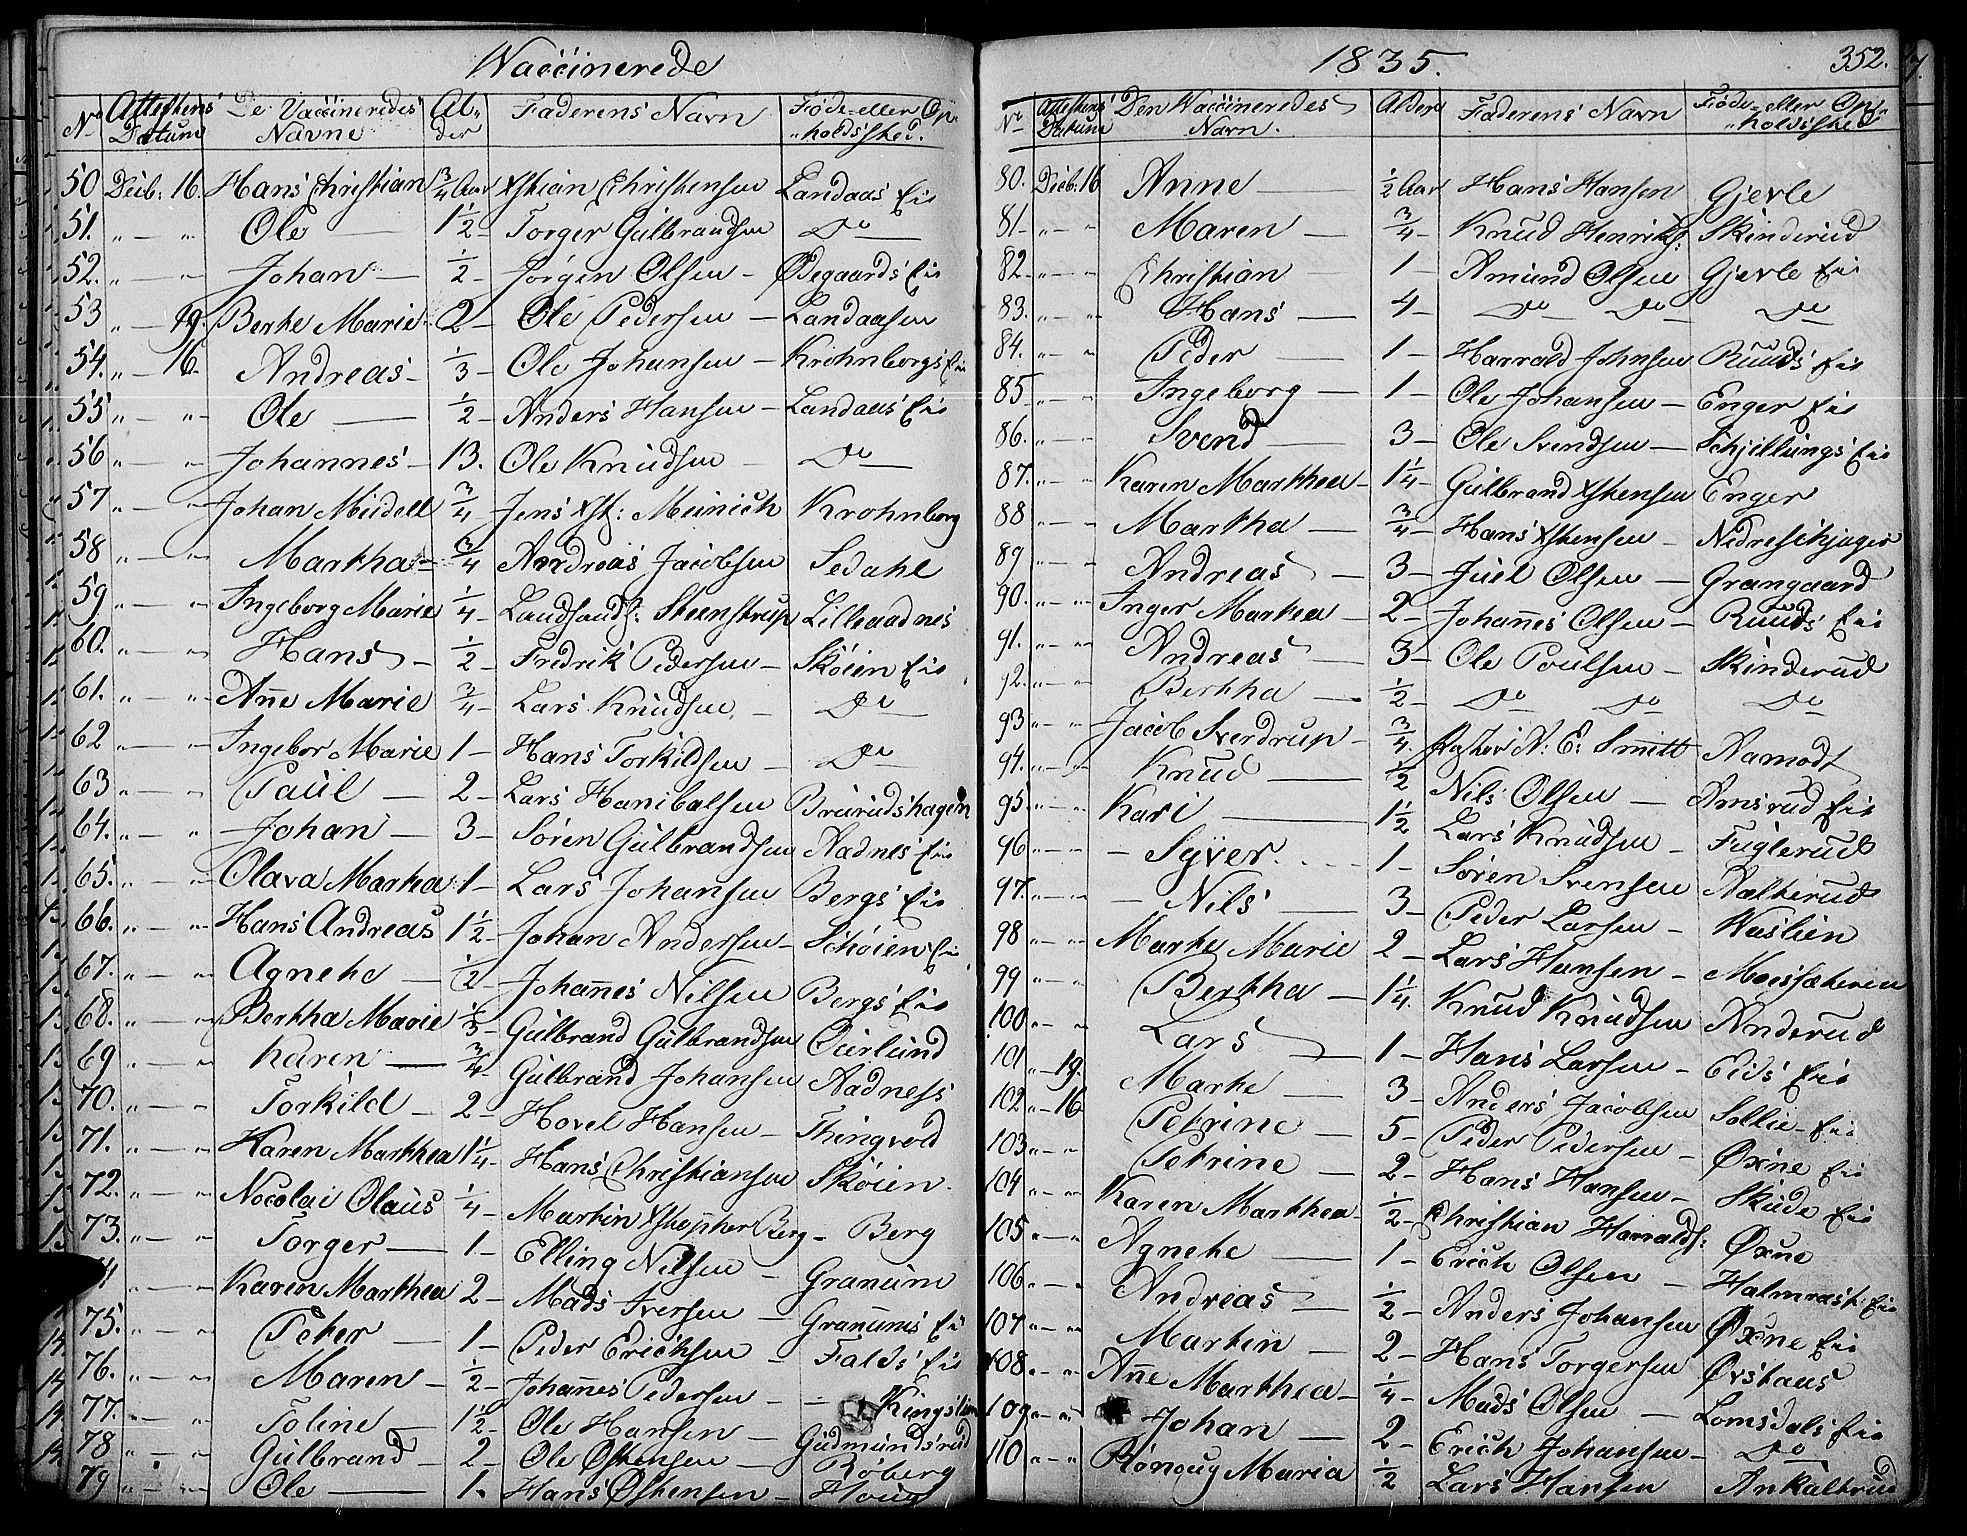 Vaccinerede
No Attestens Datum De Vaccineredes Navne Alder Faderens Navn Føde- eller Opholdssted.
50 Decb: 16. Hans Christian 3/4 Aar Xstian Christensen Landaas Eie
51. " — " Ole — 1 1/2 - Torger Gulbrandsen Do
52. " — " Johan — 1/2 - Jørgen Olsen - Ødegaards Eie
53 " — 19. Berthe Marie 2 - Ole Pedersen — Landaasen
54. " — 16. Andreas - 1/3 - Ole Johansen - Krohnborgs Eie
55 " — " Ole — 1/2 - Anders Hansen - Landaas Eie
56 " — " Johannes - 13. Ole Knudsen — Do
57 " — " Johan 3/4 Jens Xst: Meinich Krohnborg
58 " — " Martha - 3/4 Andreas Jacobsen Sedahl
59 " — " Ingeborg Marie 1/4 - Steenstrup Lilleaadnes
60. " — " Hans - 1/2 - Fredrik Pedersen - Skøien Eie
61. " — " Ane Marie 3/4 - Lars Knudsen - Do
62 " — " Ingebor Marie 1 - Hans Torkildsen - Do
63 " — " Paul — 2 - Lars Hanibalsen Breirudshagen
64. " — " Johan — 3 - Søren Gulbrandsen Aadnes Eie
65. " — " Olava Marthea 1 - Lars Johansen Bergs Eie
66. " — " Hans Andreas 1 1/2 - Johan Andersen - Schøien Eie
67. " — " Agnethe — 1/2 - Johanes Nilsen Bergs Eie
68. " — " Bertha Marie 1/3 - Gulbrand Gulbrandsen
69 " — " Karen — 3/4 - Gulbrand Johansen Aadness
70. " — " Torkild — 2 - Hovel Hansen - Thingvold
71. " — " Karen Marthea 1 1/4 - Hans Christiansen Skøien
72. " — " Nocolai Olaus 1/4 - Martin Xstopher Berg - Berg
73. " — " Torger — 1 - Elling Nilsen - Granum
" — " Karen Marthea 2 - Mads Iversen - Granums Eie
75. " — " Peter — 1 - Peder Erichsen - Falds Eie
76. " — " Maren — 1/2 - Johanes Pedersen - Kingslien
77. " — " Toline — 1 1/2 - Ole Hansen - Gudmundsrud
78 " — " Gulbrand - 2 - Ole Østensen - Røberg
79 " — " Ole — 1. Hans Østensen - Houg
1835. 352.
No Attestens Datum Den Vaccineredes Navn. Alder Faderens Navn Føde- eller Opholdssted
80. Decb: 16 Anne — 1/2 Aar Hans Hansen Gjevle
81 — " Maren — 3/4 - Knud Henriks: Skinderud
82. " — " Christian 1 - Amund Olsen Gjevle Eie
83. " — " Hans — 4 - Do Do Do
84. " — " Peder — 1 - Harrald Johnsen Ruuds Eie
85 " — " Ingeborg — 1 - Ole Johansen - Enger Eie
86. " — " Svend — 3 - Ole Svendsen - Schjellungs Eie
87. " — " Karen Marthea - 1 1/4 - Gulbrand Xstensen Enger
88 " — " Martha — 3/4 - Hans Xstensen - Nedreschjager
89 " — " Andreas — 3 - Juel Olsen - Grangaard
90. " — " Inger Marthea - 2 - Johanes Olsen - Ruuds Eie
91. " — " Andreas — 3 - Ole Poulsen - Skinderud
92. " — " Bertha — 1/2 - Do Do Do
93 " — " Jacob Sverdrup - 3/4. Pastor N: E: Smitt Aamodt
94. " — " Knud — 1/2 Nils Olsen — Amsrud Eie
95 " — " Kari — 1 1/2 Lars Knudsen - Fuglerud
96 " — " - Syver - 1 - Søren Svensen Aalterud
97. " — " - Nils — 3 - Peder Larsen - Haslien
98 " — " Marthe Marie 2 - Lars Hansen -
99 " — " Bertha — 1 1/4. Knud Knudsen Anderud
100 " — " Lars — 1 - Hans Larsen - Eids Eie
101 " — 19. Marthe — 3 - Anders Jacobsen Sollie - Eie
102 " — 16 Petrine — 5 - Peder Pedersen - Øxne Eie
103 " — " Petrine — 2 - Hans Hansen - Skude Eie
104 " — " Karen Marthea - 1/2 - Christian Harralds: Øxne
105 " — " Agnethe — 1 - Erich Olsen — Halmrast Eie
106 " — " Andreas — 1/2 - Anders Johansen Øxne Eie
107 " — " Martin — 2 - Hans Torgersen Ørstaas
108 " — " Ane Marthea - 1/4 - Mads Olsen — Lomsdals Eie
109 " — " Johan — 2 - Erich Johansen - Do
110 " — " Rønoug Maria 1/2 - Lars Hansen Ankaltrud